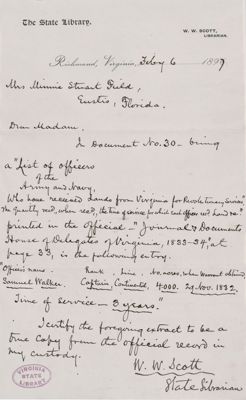 The State Library.
W. W. SCOTT,
LIBRARIAN.
Richmond, Virginia, Feby 6 1899
Mrs Minnie Stuart Field,
Eustis, Florida.
Dear Madam,
In Document No. 30 — being
a "List of officers
of the
Army and Navy,
Who have received lands from Virginia for Revolutionary Services,"
The quantity recd, when recd, the time of service for which each officer recd land &c."
printed in the official — "Journal & Documents
House of Delegates of Virginia, 1833-34," at
page 33, is the following entry.
"Officers name. Rank. Line. No. acres. when Warrant obtained,
Samuel Walker. Captain Continental, 4000. 29. Nov. 1832.
Time of Service — 3 years."
I certify the foregoing extract to be a
true copy from the official record in
my custody.
W. W. Scott
State Librarian
VIRGINIA
STATE
LIBRARY